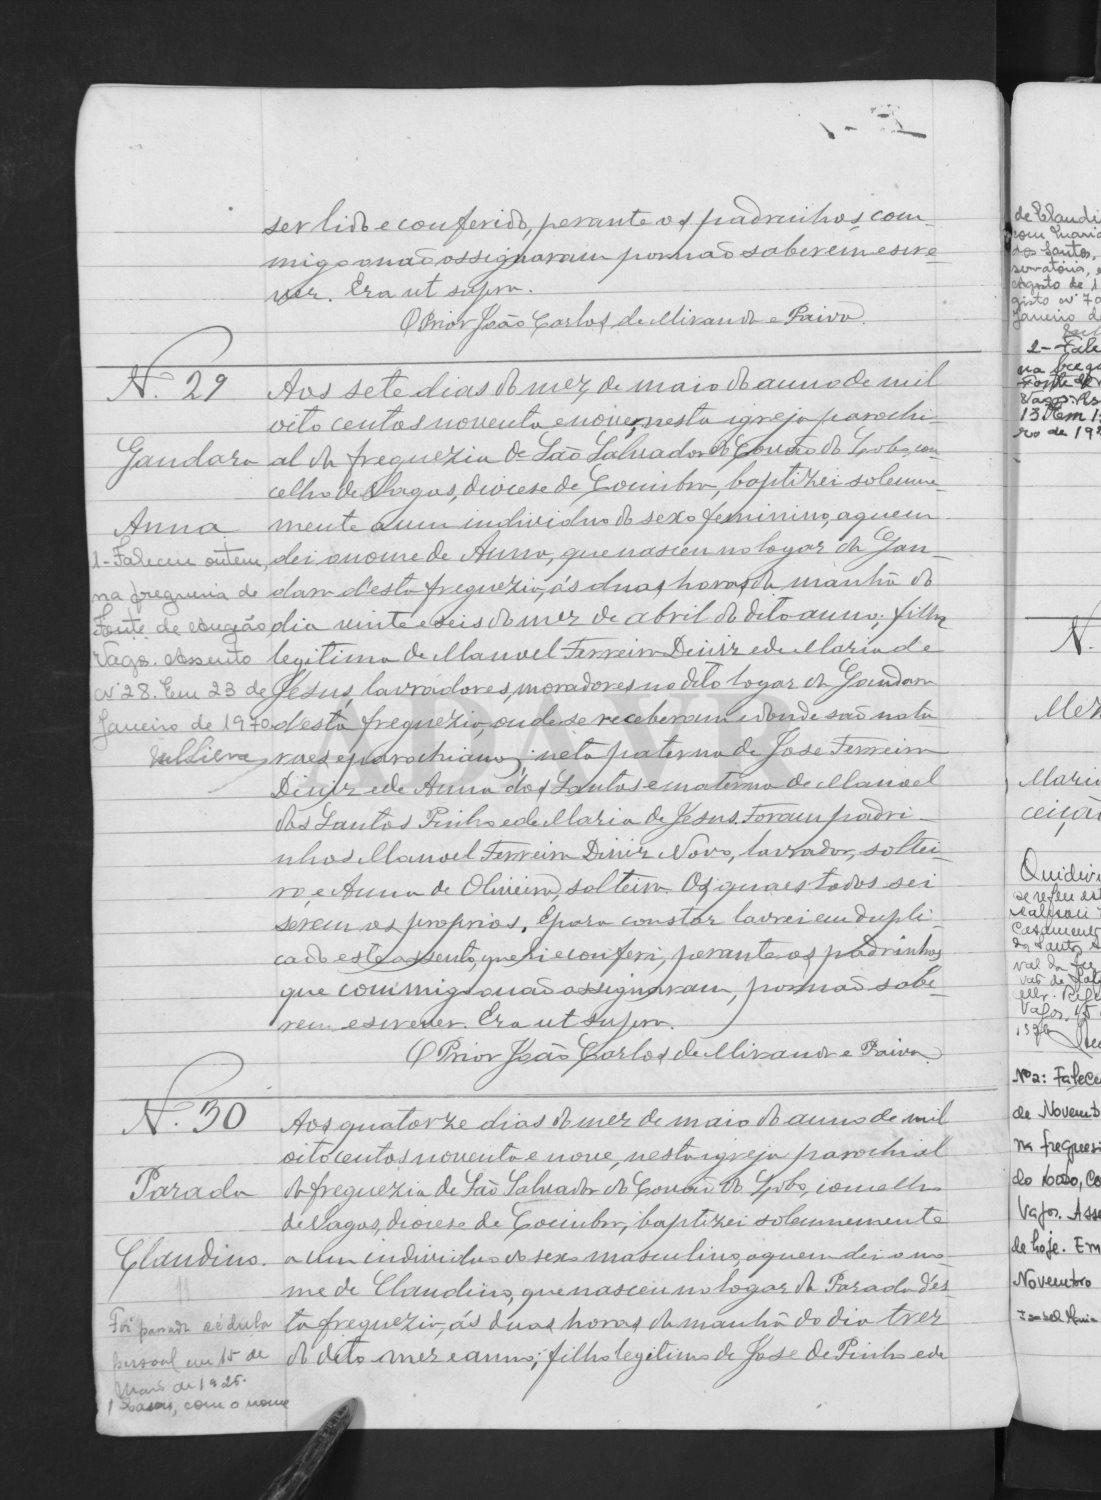 ser lido e conferido, perante os padrinhos, com-
migo o não assignaram por não saberem escre-
ver. Era ut supra.
O Prior João Carlos de Miranda e Paiva.
N. 29
Gandara
Anna
1 - Faleceu ontem,
na freguesia de
Fonte de Angião
Vagos. Assento
nº 28. Em 23 de
Janeiro de 1970
Aos sete dias do mez de maio do anno de mil
oito centos noventa e nove, nesta igreja parochi-
al da freguezia de São Salvador do Covão do Lobo, con-
celho de Vagos, diocese de Coimbra, baptizei solemne-
mente a um individuo do sexo feminino, a quem
dei o nome de Anna, que nasceu no logar da Gan-
dara d'esta freguezia, ás duas horas da manhã do
dia vinte e seis do mez de abril do dito anno, filha
legitima de Manoel Ferreira Diniz e de Maria de
Jesus lavradores, moradores no dito logar da Gandara
d'esta freguezia, onde se receberam e donde são natu
raes e parochianos; neta paterna de Jose Ferreira
Diniz e de Anna dos Santos e materna de Manoel
dos Santos Pinho e de Maria de Jesus. Foram padri-
nhos Manoel Ferreira Diniz Novo, lavrador, soltei-
ro, e Anna de Oliveira, solteira. Os quaes todos sei
serem os proprios. E para constar lavrei em dupli-
cado este assento, que li e conferi, perante os padrinhos
que commigo o não assignaram, por não sabe-
rem escrever. Era ut supra.
O Prior João Carlos de Miranda e Paiva.
N. 30
Parada
Claudino.
Foi passada cédula
pessoal em 15 de
Maio de 1925.
1 Casou, com o nome
Aos quatorze dias do mez de maio do anno de mil
oito centos noventa e nove, nesta igreja parochial
da freguezia de São Salvador do Covão do Lobo, concelho
de Vagos, diocese de Coimbra, baptizei solemnemente
a um individuo do sexo masculino, a quem dei o no
me de Claudino, que nasceu no logar da Parada d'es-
ta freguezia, ás duas horas da manhã do dia trez
do dito mez e anno; filho legitimo de Jose de Pinho e de
de Claudi
com Maria
dos Santos,
Agosto de 1
Janeiro d
2 - Fale
na fregu
Vagos. As
13 Em 1
ro de 19
N.
Maria
ceiçã
Nº 2: Falece
de Novemb
na fregues
do Lobo, Co
Vagos. Asse
de hoje. Em
Novembro